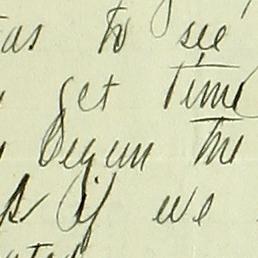 to see
get time
begun the
if we